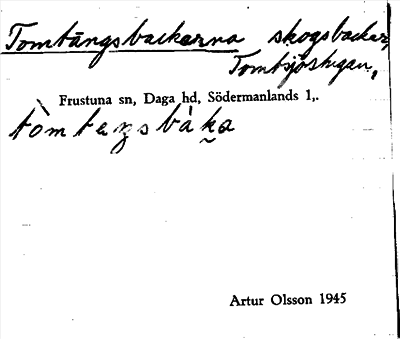 Tomtängsbackarna skogsbackar,
Tomtsjöstugan,
Frustuna sn, Daga hd, Södermanlands l,.
Artur Olsson 1945